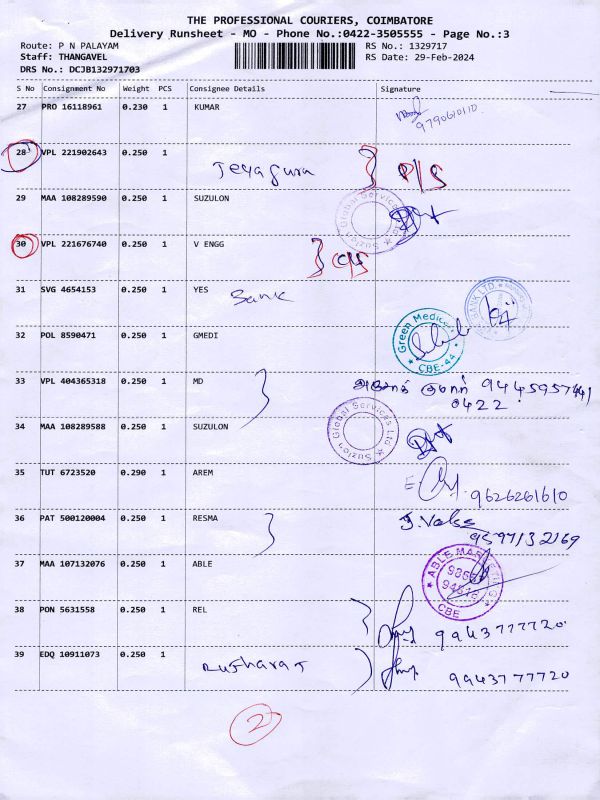 THE PROFESSIONAL COURIERS, COIMBATORE
Delivery Runsheet - MO - Phone No.:0422-3505555 - Page No.:3
Route: P N PALAYAM RS No.: 1329717
Staff: THANGAVEL RS Date: 29-Feb-2024
DRS No.: DCJB132971703
S No Consignment No Weight PCS Consignee Details Signature
27 PRO 16118961 0.230 1 KUMAR
9790610110
28 VPL 221902643 0.250 1
Jeyagura
29 MAA 108289590 0.250 1 SUZULON
Suzlon Global Services Ltd
30 VPL 221676740 0.250 1 V ENGG
31 SVG 4654153 0.250 1 YES
Bank
BANK LTD.
32 POL 8590471 0.250 1 GMEDI
Green Medical
CBE-44
33 VPL 404365318 0.250 1 MD
அசோக் குமார்
0422
34 MAA 108289588 0.250 1 SUZULON
Suzlon Global Services Ltd
35 TUT 6723520 0.290 1 AREM
9626261610
36 PAT 500120004 0.250 1 RESMA
9597132169
37 MAA 107132076 0.250 1 ABLE
ABLE
CBE
38 PON 5631558 0.250 1 REL
9943777720
39 EDQ 10911073 0.250 1
9943777720
2